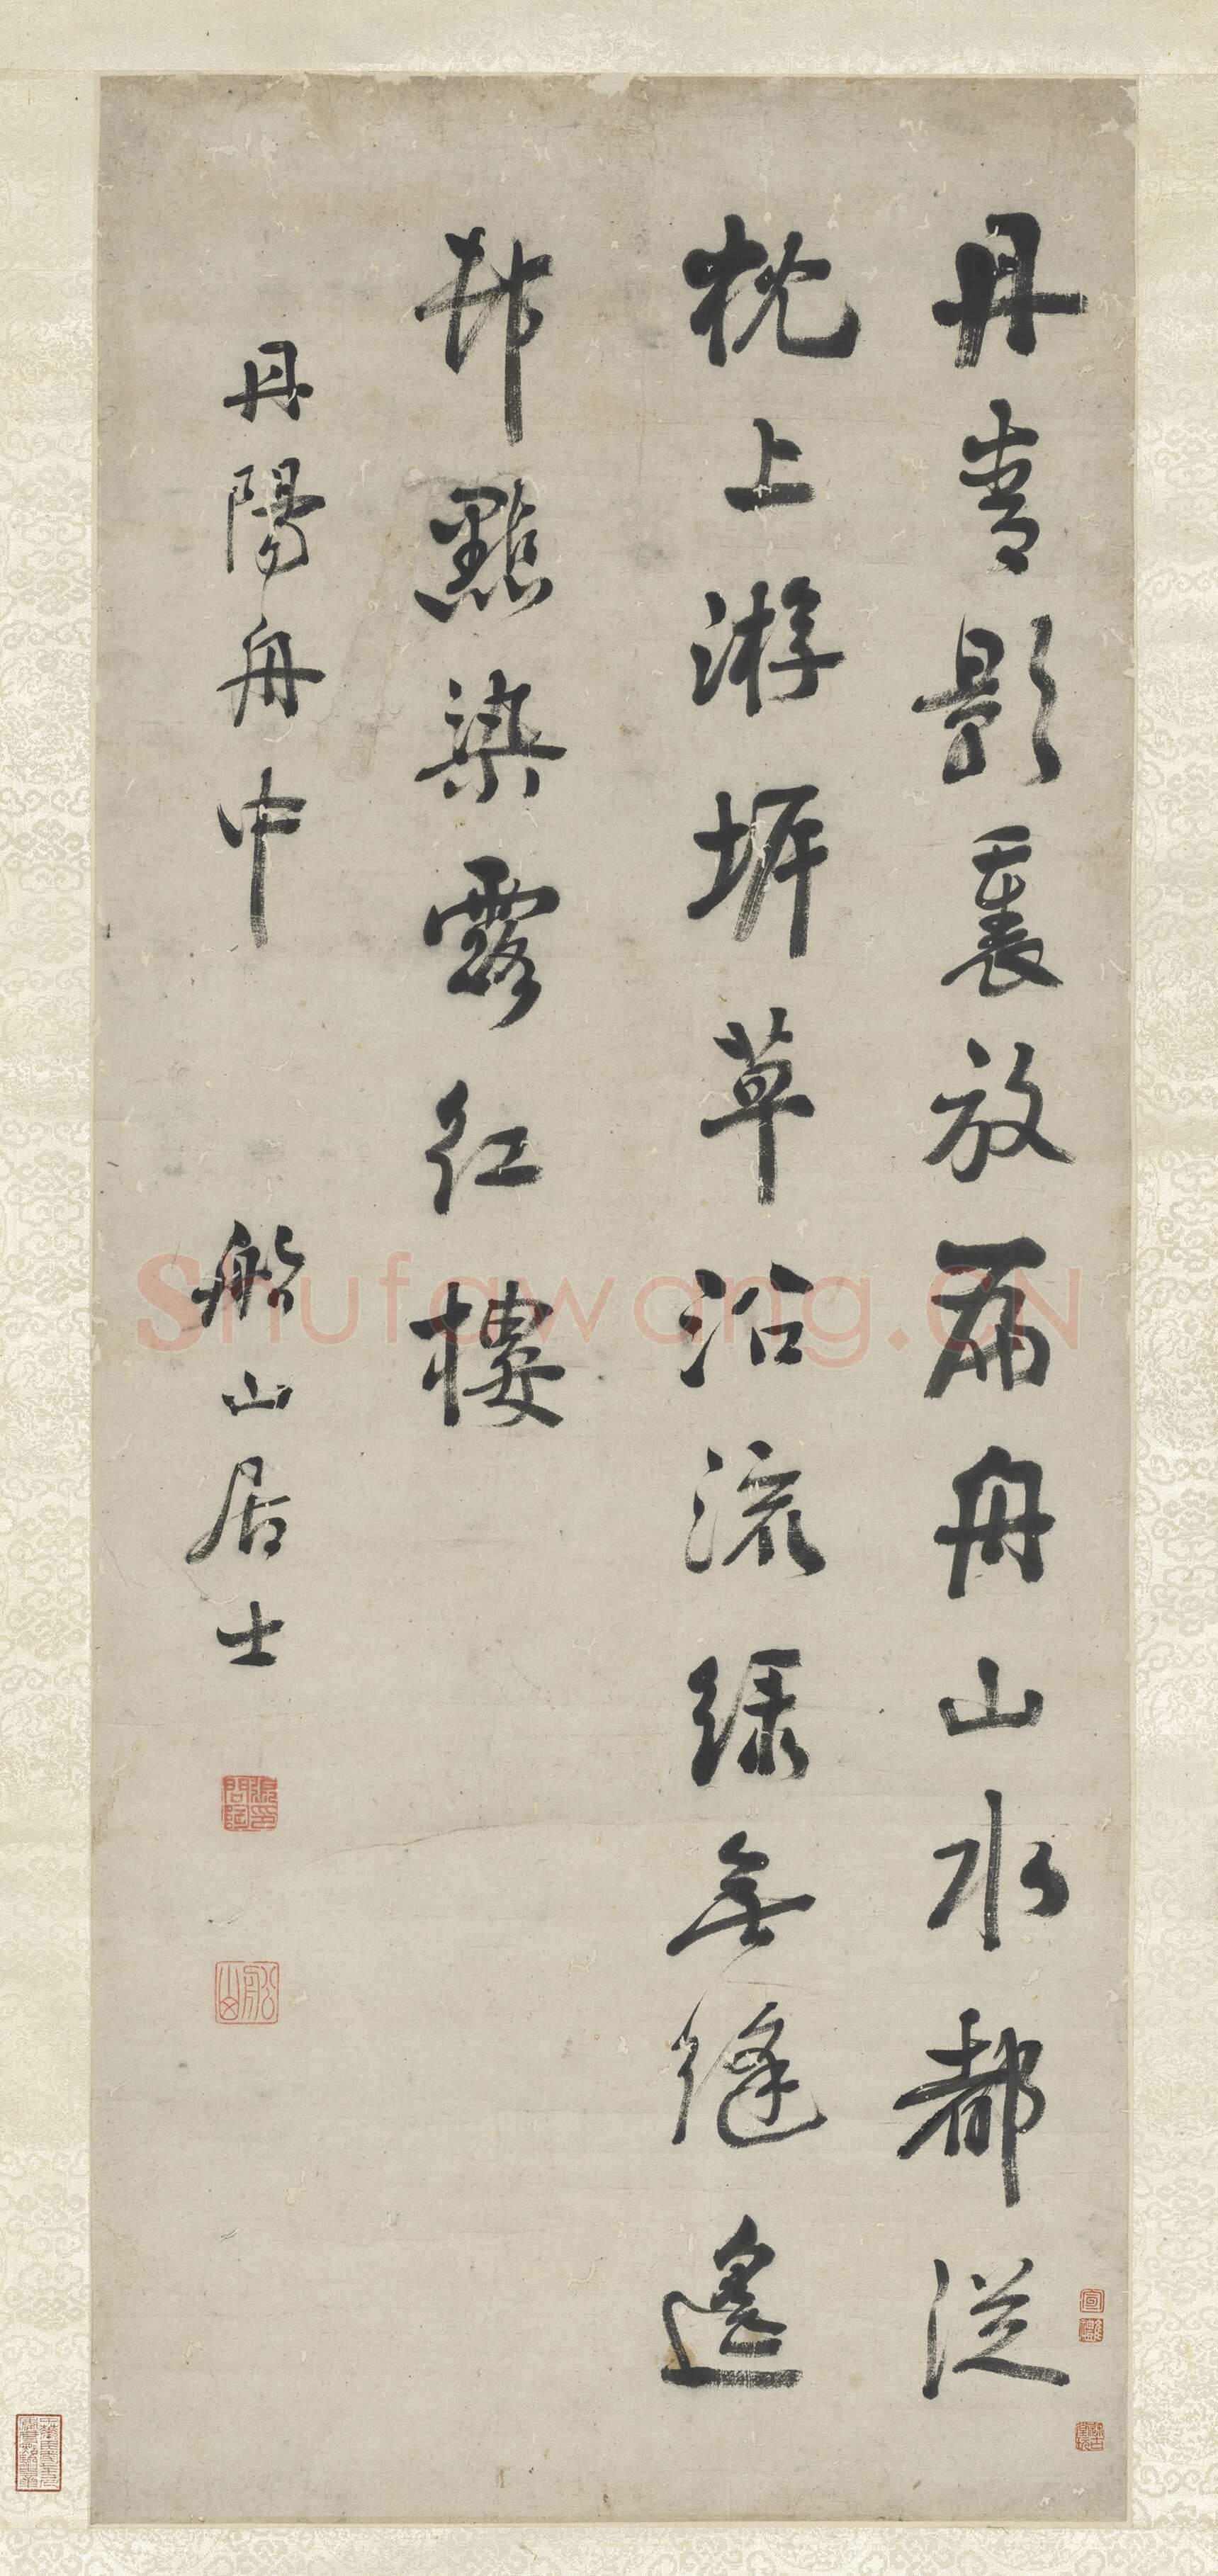 丹青影裏放扁舟山水都從
枕上游㘰草沿流綠無縫遙
邨點染露紅樓
丹陽舟中
船山居士
張問陶印
船山
Shufawang.CN